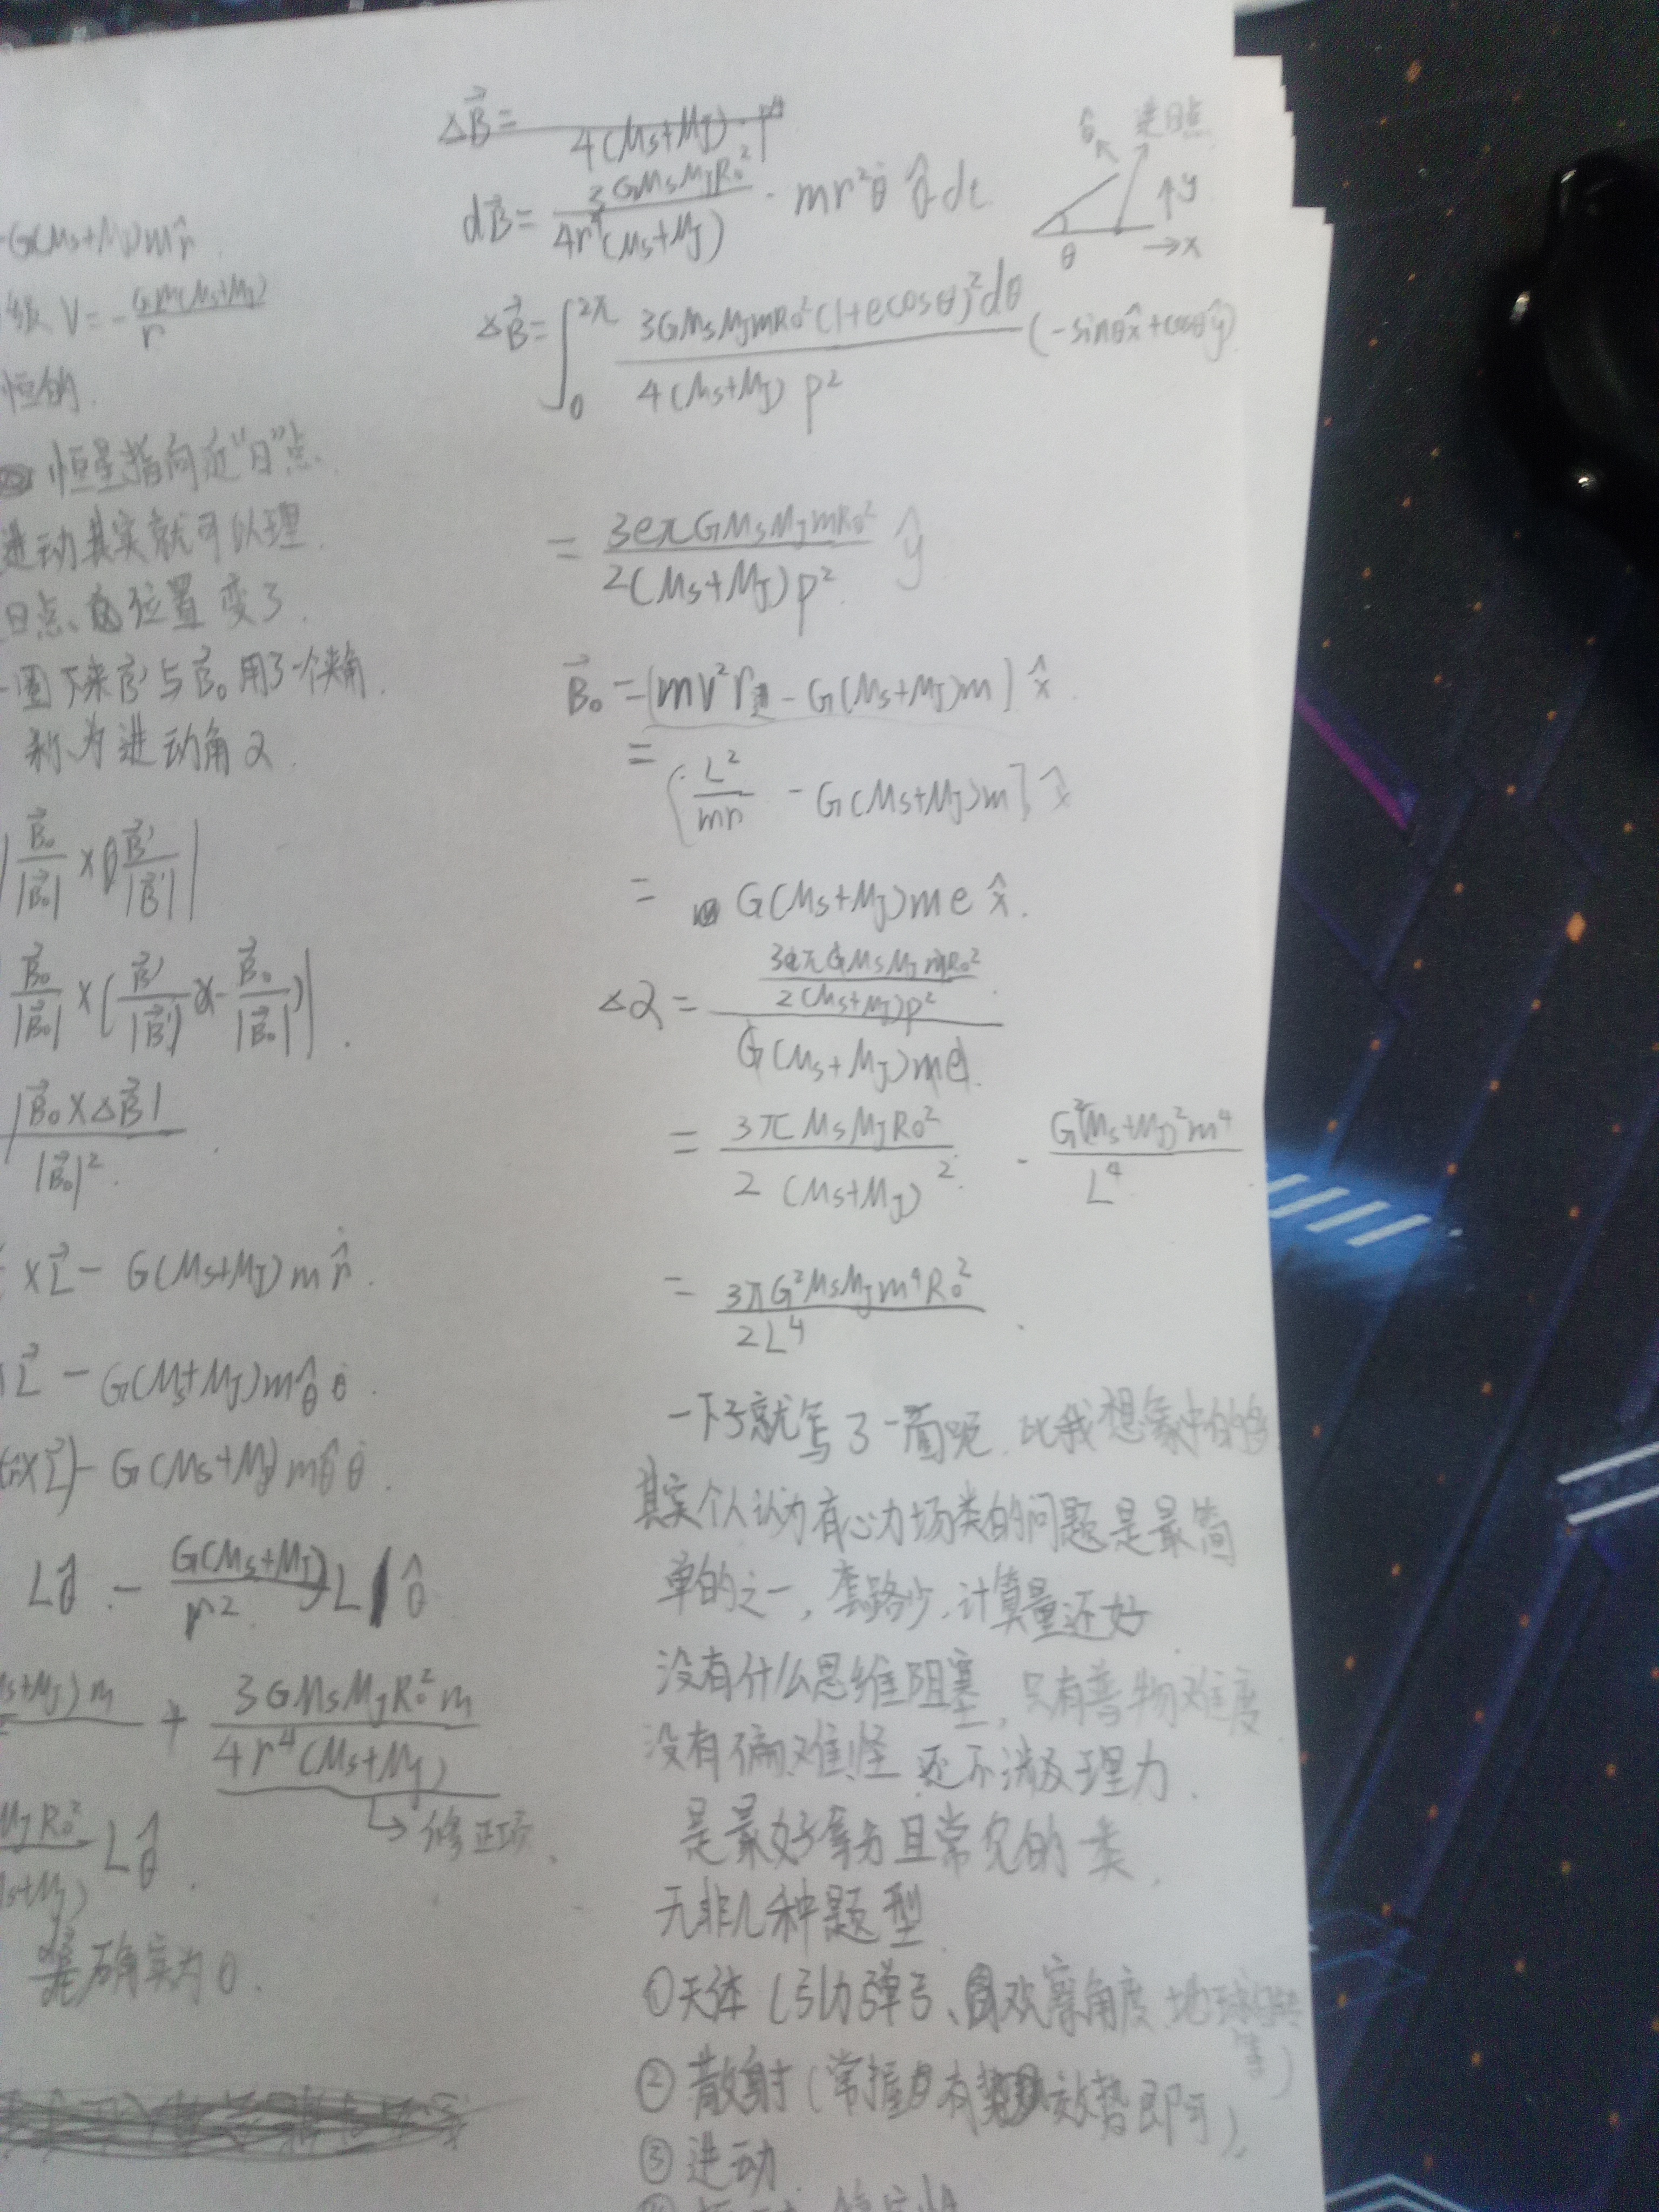 -G(Ms+MJ)m r̂
V = - Gm(Ms+MJ) / r
恒的.
恒星指向近“日”点.
进动其实就可以理
日点、位置变了.
一圈下来B⃗'与B⃗₀用了一个夹角.
称为进动角α.
| B⃗₀/|B⃗₀| × B⃗'/|B⃗'| |
B⃗₀/|B⃗₀| × ( B⃗'/|B⃗'| - B⃗₀/|B⃗₀| ) | .
|B⃗₀×ΔB⃗| / |B⃗₀|² .
×L⃗ - G(Ms+MJ)m r̂̇ .
L⃗ - G(Ms+MJ)m θ̂ θ̇ .
×L⃗) - G(Ms+MJ)m θ̂ θ̇ .
Lθ̂ - G(Ms+MJ)/r² L θ̂
s+MJ)m + 3GMsMJR₀²m / 4r⁴(Ms+MJ)
→ 修正项.
MJR₀² / s+MJ) Lθ̂ .
确实为0.
ΔB⃗ = / 4(Ms+MJ)·p⁴
dB⃗ = 3GMsMJR₀² / 4r⁴(Ms+MJ) · mr²θ̇ θ̂ dt
θ̂ 近日点
↑y
θ →x
ΔB⃗ = ∫₀^2π 3GMsMJmR₀²(1+ecosθ)²dθ / 4(Ms+MJ)p² (-sinθx̂+cosθŷ)
= 3eπGMsMJmR₀² / 2(Ms+MJ)p² ŷ
B⃗₀ = [mv²r近 - G(Ms+MJ)m] x̂
= [L²/mr - G(Ms+MJ)m] x̂
= G(Ms+MJ)me x̂.
Δα = 3eπGMsMJmR₀² / 2(Ms+MJ)p² / G(Ms+MJ)me.
= 3πMsMJR₀² / 2(Ms+MJ)² · G²(Ms+MJ)²m⁴ / L⁴
= 3πG²MsMJm⁴R₀² / 2L⁴ .
一下子就写了一面呢. 比我想象中的多
其实个人认为有心力场类的问题是最简
单的之一，套路少，计算量还好
没有什么思维阻塞，只有普物难度
没有偏难怪 还不涉及理力.
是最好拿分且常见的一类.
无非几种题型
①天体 (引力弹弓、观察角度、等)
②散射 (掌握有效势即可).
③进动.